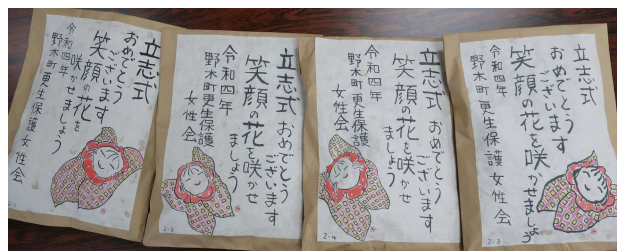 立志式
おめでとう
ございます
笑顔の花を
咲かせましょう
令和四年
野木町更生保護女性会
立志式
おめでとう
ございます
笑顔の花を咲かせ
ましょう
令和四年
野木町更生保護
女性会
2-2
立志式
おめでとう
ございます
笑顔の花を咲かせ
ましょう
令和四年
野木町更生保護
女性会
2-4
立志式
おめでとう
ございます
笑顔の花を咲かせましょう
令和四年
野木町更生保護女性会
2-3